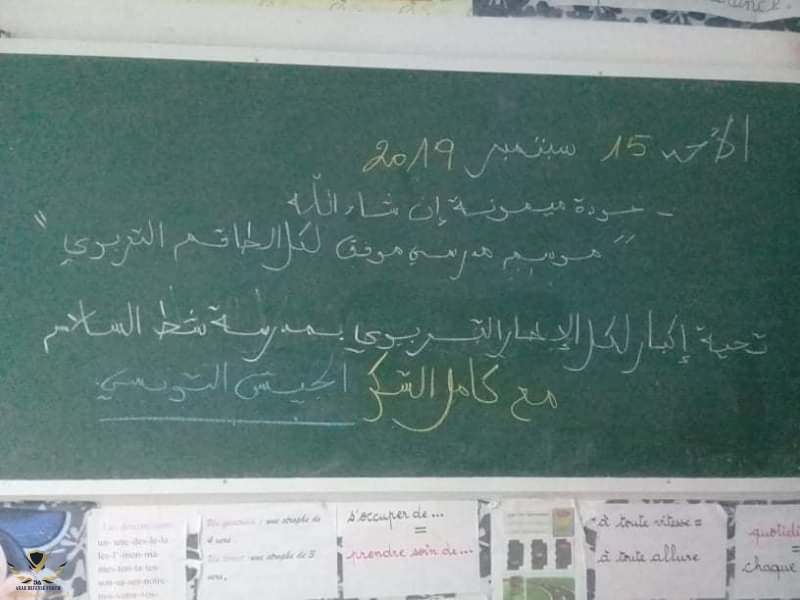 الأحد 15 سبتمبر 2019
- عودة ميمونة إن شاء الله
"موسم مدرسي موفق لكل الطاقم التربوي"
تحية إكبار لكل الإطار التربوي بمدرسة شط السلام
مع كامل الشكر الجيش التونسي
un-une-des-le-la
les-l'-mon-ma-
mes-ton-ta-tes-
son-sa-ses-notre-
Un quatrain : une strophe de
4 vers.
Un tercet : une strophe de 3
vers.
s'occuper de ...
=
prendre soin de...
à toute vitesse =
à toute allure
quotidi
=
chaque
ARAB DEFENSE FORUM